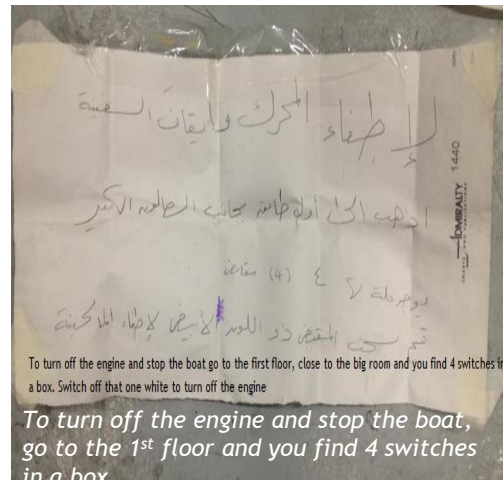 لإطفاء المحرك وايقاف السفينة
اذهب الى أول طابق بجانب الصالون الكبير
يوجد علبة لها ٤ (4) مقابض
قم بسحب المقبض ذو اللون الأبيض لإطفاء الماكينة
ADMIRALTY 1440
To turn off the engine and stop the boat go to the first floor, close to the big room and you find 4 switches in
a box. Switch off that one white to turn off the engine
To turn off the engine and stop the boat,
go to the 1st floor and you find 4 switches
in a box